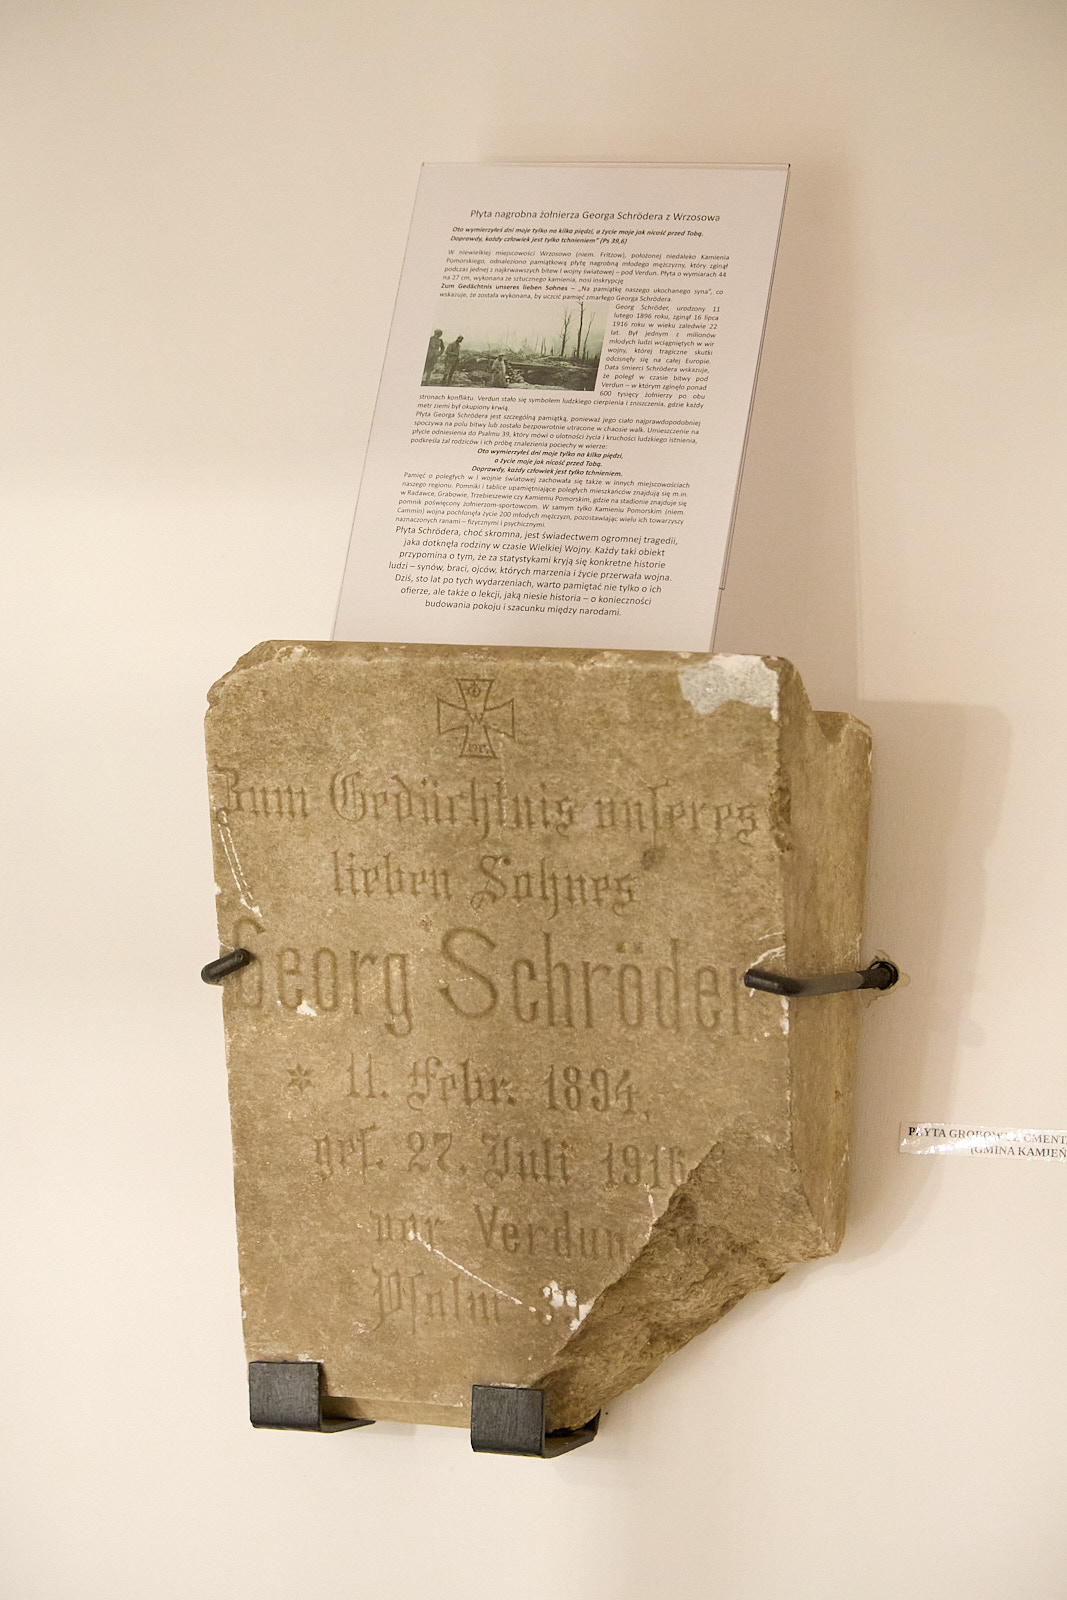 Płyta nagrobna żołnierza Georga Schrödera z Wrzosowa
Oto wymierzyłeś dni moje tylko na kilka piędzi, a życie moje jak nicość przed Tobą.
Doprawdy, każdy człowiek jest tylko tchnieniem" (Ps 39,6)
W niewielkiej miejscowości Wrzosowo (niem. Fritzow), położonej niedaleko Kamienia
Pomorskiego, odnaleziono pamiątkową płytę nagrobną młodego mężczyzny, który zginął
podczas jednej z najkrwawszych bitew I wojny światowej – pod Verdun. Płyta o wymiarach 44
na 27 cm, wykonana ze sztucznego kamienia, nosi inskrypcję
Zum Gedächtnis unseres lieben Sohnes – „Na pamiątkę naszego ukochanego syna", co
wskazuje, że została wykonana, by uczcić pamięć zmarłego Georga Schrödera.
Georg Schröder, urodzony 11
lutego 1896 roku, zginął 16 lipca
1916 roku w wieku zaledwie 22
lat. Był jednym z milionów
młodych ludzi wciągniętych w wir
wojny, której tragiczne skutki
odcisnęły się na całej Europie.
Data śmierci Schrödera wskazuje,
że poległ w czasie bitwy pod
Verdun – w którym zginęło ponad
600 tysięcy żołnierzy po obu
stronach konfliktu. Verdun stało się symbolem ludzkiego cierpienia i zniszczenia, gdzie każdy
metr ziemi był okupiony krwią.
Płyta Georga Schrödera jest szczególną pamiątką, ponieważ jego ciało najprawdopodobniej
spoczywa na polu bitwy lub zostało bezpowrotnie utracone w chaosie walk. Umieszczenie na
płycie odniesienia do Psalmu 39, który mówi o ulotności życia i kruchości ludzkiego istnienia,
podkreśla żal rodziców i ich próbę znalezienia pociechy w wierze:
Oto wymierzyłeś dni moje tylko na kilka piędzi,
a życie moje jak nicość przed Tobą.
Doprawdy, każdy człowiek jest tylko tchnieniem.
Pamięć o poległych w I wojnie światowej zachowała się także w innych miejscowościach
naszego regionu. Pomniki i tablice upamiętniające poległych mieszkańców znajdują się m.in.
w Radawce, Grabowie, Trzebieszewie czy Kamieniu Pomorskim, gdzie na stadionie znajduje się
pomnik poświęcony żołnierzom-sportowcom. W samym tylko Kamieniu Pomorskim (niem.
Cammin) wojna pochłonęła życie 200 młodych mężczyzn, pozostawiając wielu ich towarzyszy
naznaczonych ranami – fizycznymi i psychicznymi.
Płyta Schrödera, choć skromna, jest świadectwem ogromnej tragedii,
jaka dotknęła rodziny w czasie Wielkiej Wojny. Każdy taki obiekt
przypomina o tym, że za statystykami kryją się konkretne historie
ludzi – synów, braci, ojców, których marzenia i życie przerwała wojna.
Dziś, sto lat po tych wydarzeniach, warto pamiętać nie tylko o ich
ofierze, ale także o lekcji, jaką niesie historia – o konieczności
budowania pokoju i szacunku między narodami.
W
Zum Gedächtnis unseres
lieben Sohnes
Georg Schröder
* 11. Febr. 1894,
gef. 27. Juli 1916
vor Verdun
Psalm 39
PŁYTA GROBOWA Z CMENT
(GMINA KAMIEŃ